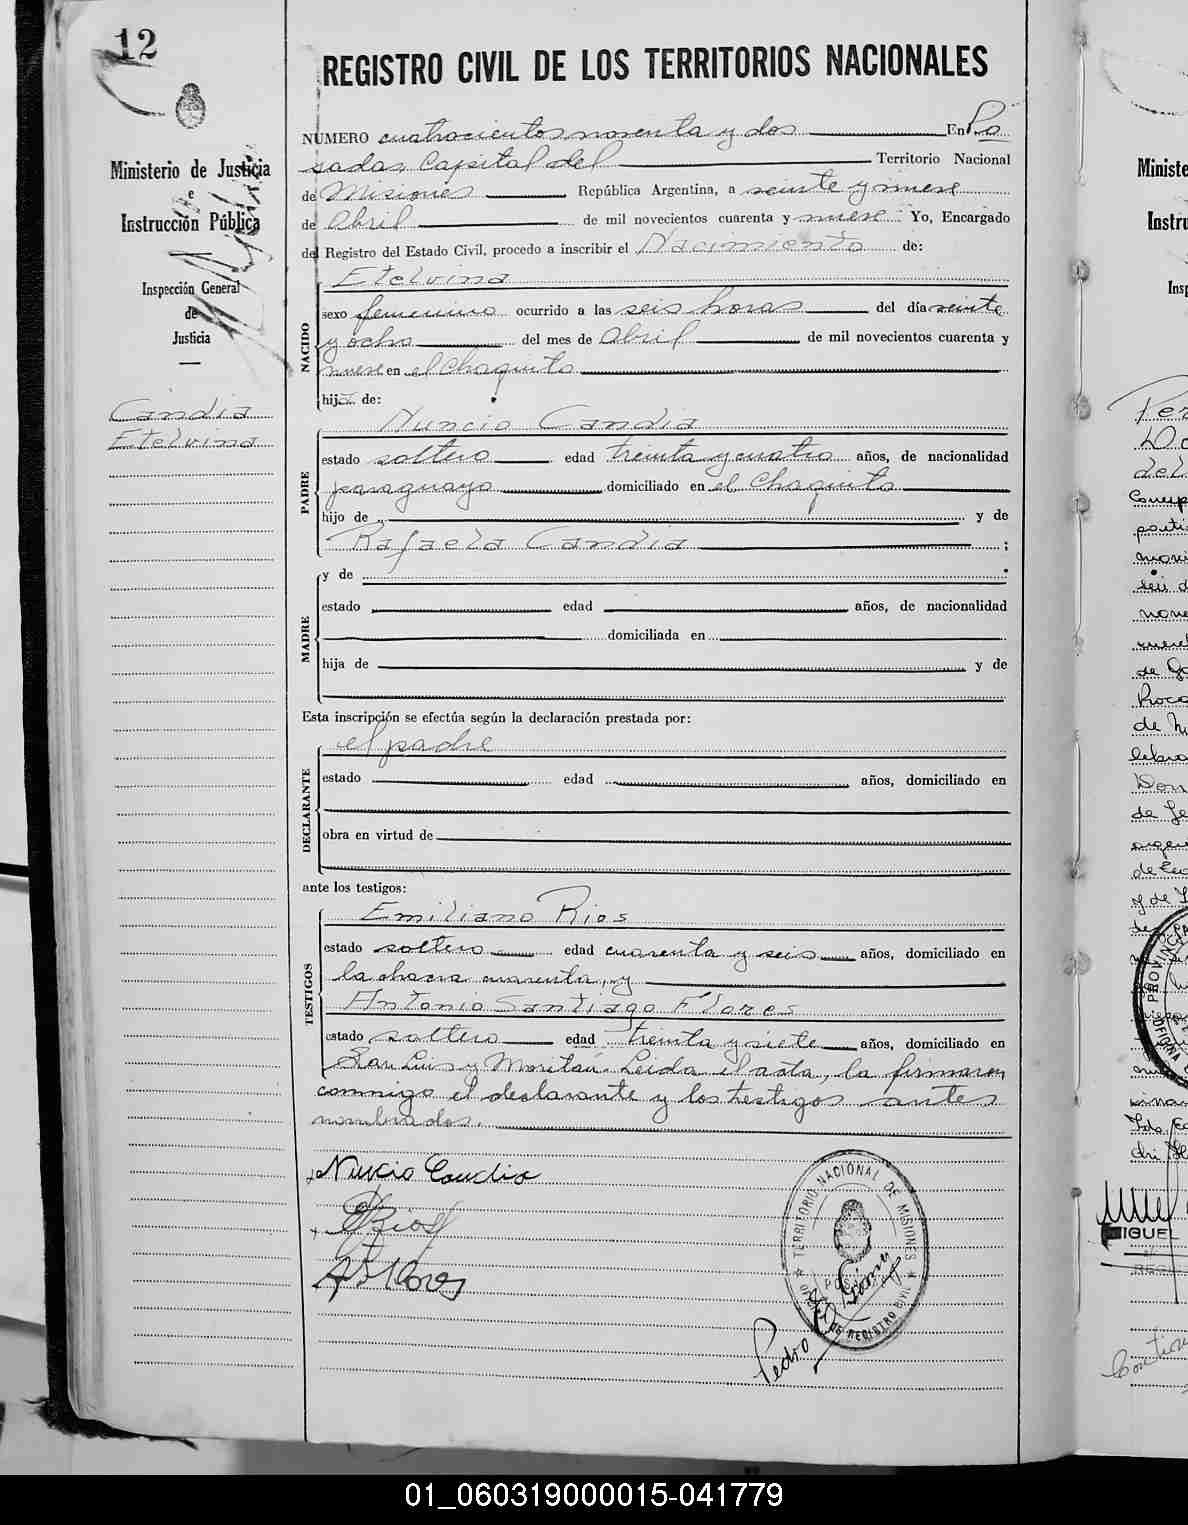 12
REGISTRO CIVIL DE LOS TERRITORIOS NACIONALES
Ministerio de Justicia
e
Instrucción Pública
Inspección General
de
Justicia
Candia
Etelvina
NÚMERO cuatrocientos noventa y dos En Po
sadas Capital del Territorio Nacional
de Misiones República Argentina, a veinte y nueve
de Abril de mil novecientos cuarenta y nueve Yo, Encargado
del Registro del Estado Civil, procedo a inscribir el Nacimiento de:
NACIDO
Etelvina
sexo femenino ocurrido a las seis horas del día veinte
y ocho del mes de Abril de mil novecientos cuarenta y
nueve en el Chaquito
hija de:
PADRE
Nuncio Candia
estado soltero edad treinta y cuatro años, de nacionalidad
paraguaya domiciliado en el Chaquito
hijo de y de
Rafaela Candia ;
MADRE
y de
estado edad años, de nacionalidad
domiciliada en
hija de y de
Esta inscripción se efectúa según la declaración prestada por:
DECLARANTE
el padre
estado edad años, domiciliado en
obra en virtud de
ante los testigos:
TESTIGOS
Emiliano Rios
estado soltero edad cuarenta y seis años, domiciliado en
la chacra cuarenta, y
Antonio Santiago Flores
estado soltero edad treinta y siete años, domiciliado en
San Luis y Moritán. Leida el acta, la firmaron
conmigo el declarante y los testigos antes
nombrados.
Nuncio Candia
ERios
ASFlores
TERRITORIO NACIONAL DE MISIONES
DE REGISTRO CIVIL
Pedro Gómez
Ministe
Instru
Insp
del
de
PROVIN
OFICINA
IGUEL
01_060319000015-041779